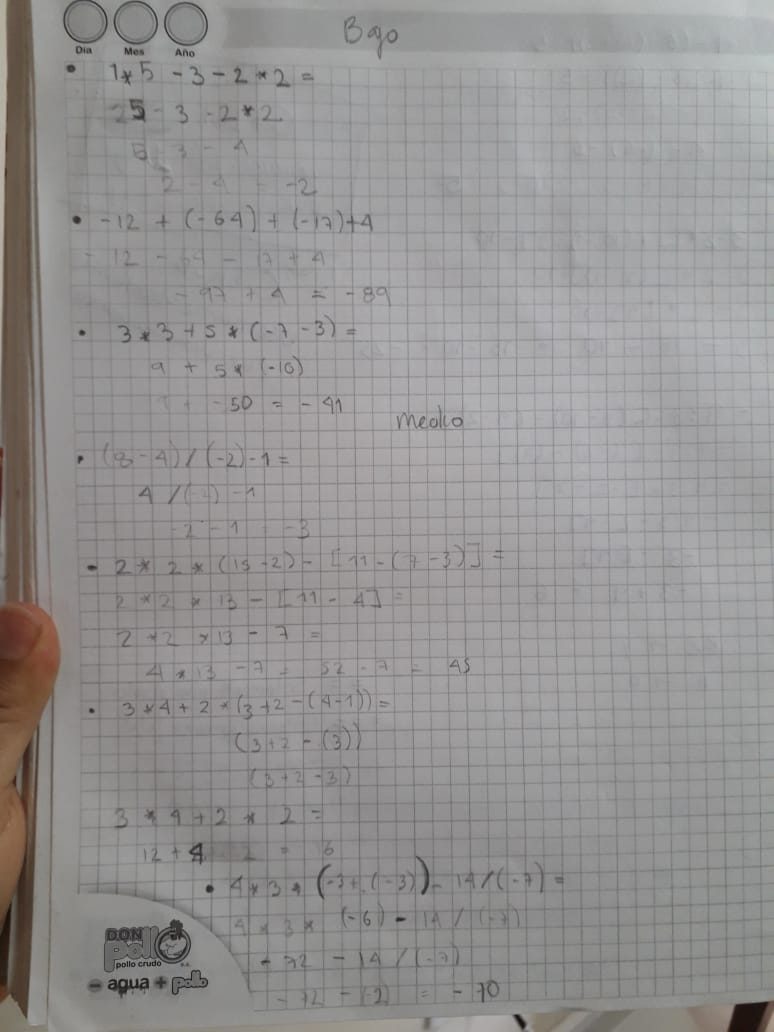 Dia Mes Año
Bajo
1*5 - 3 - 2*2 =
5 - 3 - 2*2
5 - 3 - 4
2 - 4 = -2
-12 + (-64) + (-17) + 4
- 12 - 64 - 17 + 4
- 93 + 4 = -89
3*3 + 5*(-7 - 3) =
9 + 5*(-10)
9 + -50 = -41
Medio
(8 - 4) / (-2) - 1 =
4 / (-2) - 1
-2 - 1 = -3
2 * 2 * (15 - 2) - [11 - (7 - 3)] =
2 * 2 * 13 - [11 - 4] =
2 * 2 * 13 - 7 =
4 * 13 - 7 = 52 - 7 = 45
3*4 + 2*(3 + 2 - (4 - 1)) =
(3 + 2 - (3))
(3 + 2 - 3)
3 * 4 + 2 * 2 =
12 + 4 = 16
4*3*(-3 + (-3)) - 14/(-7) =
4 * 3 * (-6) - 14 / (-7)
- 72 - 14 / (-7)
- 72 - (-2) = -70
DON
pollo
pollo crudo S.A.
- agua + pollo